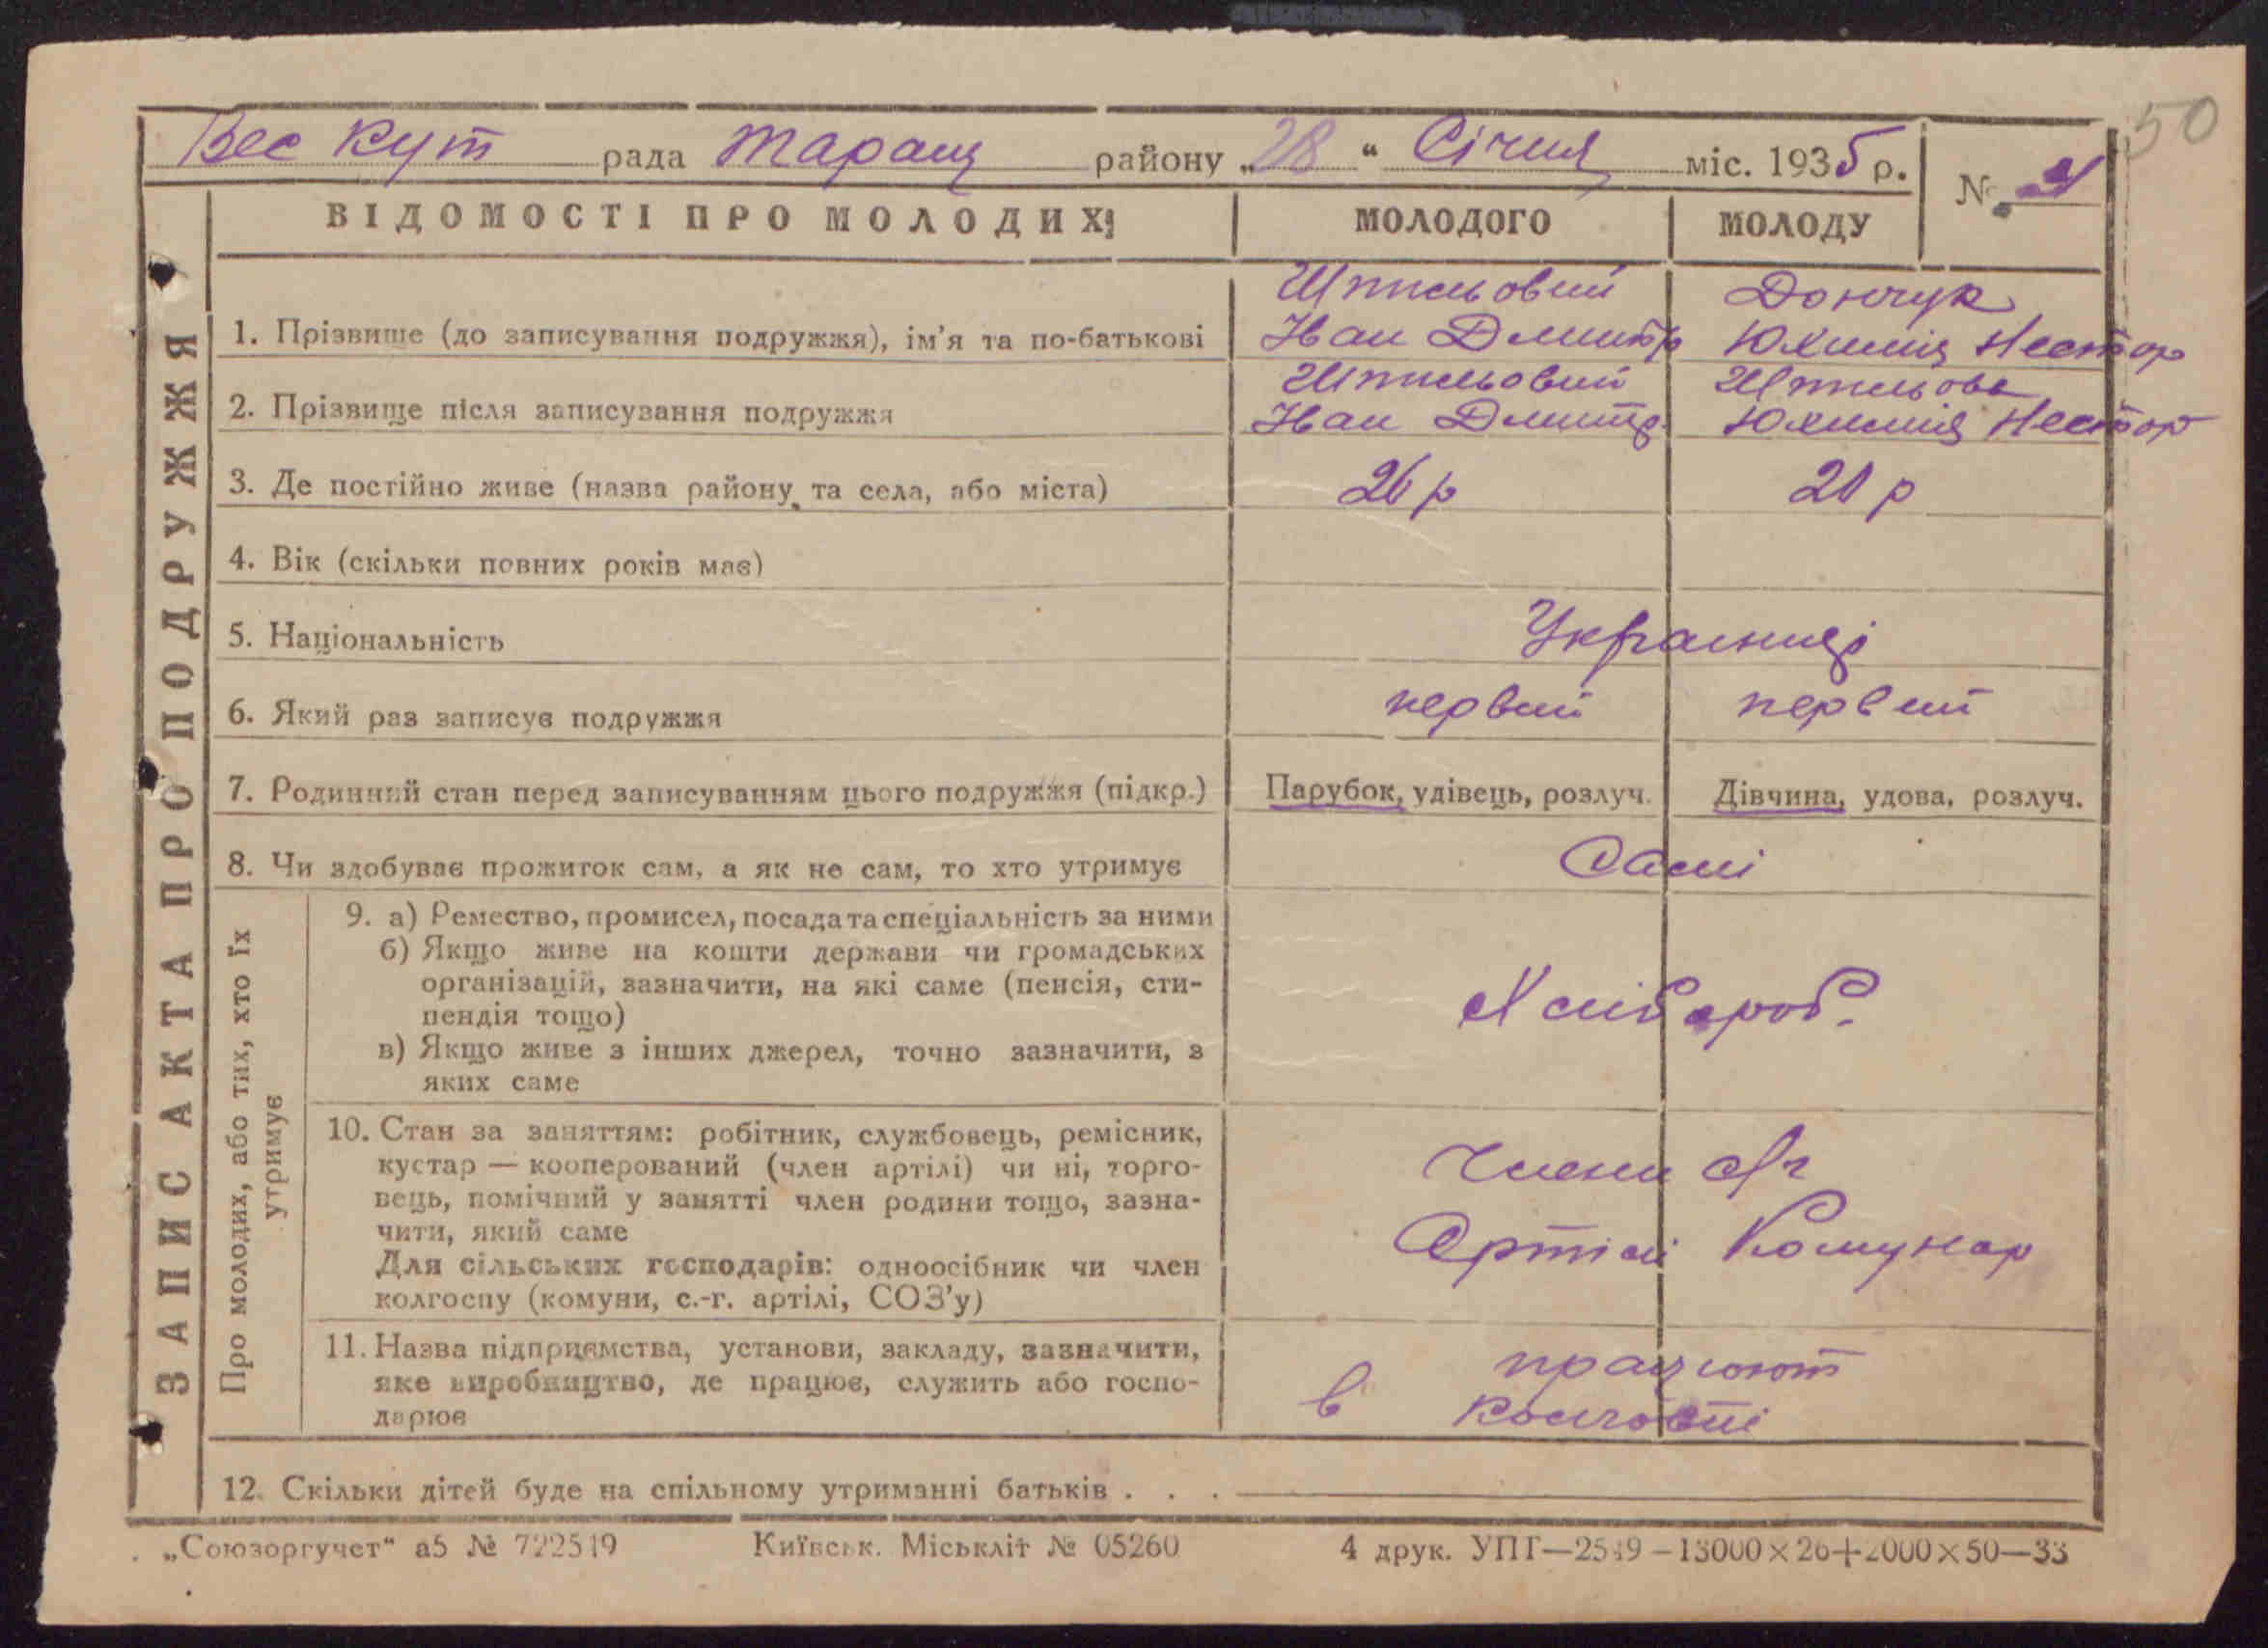 50
Вес Кут рада Таращ району „28“ Січня міс. 1935 р.
№
ВІДОМОСТІ ПРО МОЛОДИХ: МОЛОДОГО МОЛОДУ
ЗАПИС АКТА ПРО ПОДРУЖЖЯ
Шпильовий Дончук
1. Прізвище (до записування подружжя), ім’я та по-батькові Іван Дмитр Юхимія Нестор
Шпильовий Шпильова
2. Прізвище після записування подружжя Іван Дмитр. Юхимія Нестор
3. Де постійно живе (назва району та села, або міста) 26 р 21 р
4. Вік (скільки повних років має)
5. Національність Українці
6. Який раз записує подружжя первий первий
7. Родинний стан перед записуванням цього подружжя (підкр.) Парубок, удівець, розлуч. Дівчина, удова, розлуч.
8. Чи здобуває прожиток сам, а як не сам, то хто утримує Самі
Про молодих, або тих, хто їх
утримує
9. а) Ремество, промисел, посада та спеціальність за ними
б) Якщо живе на кошти держави чи громадських
організацій, зазначити, на які саме (пенсія, сти-
пендія тощо)
в) Якщо живе з інших джерел, точно зазначити, з
яких саме
Хлібороб.
10. Стан за заняттям: робітник, службовець, ремісник,
кустар — кооперований (член артілі) чи ні, торго-
вець, помічний у занятті член родини тощо, зазна-
чити, який саме
Для сільських господарів: одноосібник чи член
колгоспу (комуни, с.-г. артілі, СОЗ’у)
Члени
Артілі Комунар
11. Назва підприємства, установи, закладу, зазначити,
яке виробництво, де працює, служить або госпо-
дарює
працюют
в колгоспі
12. Скільки дітей буде на спільному утриманні батьків . . .
„Союзоргучет“ а5 № 722519 Київськ. Міськліт № 05260 4 друк. УПГ—2549—13000×26+2000×50—33